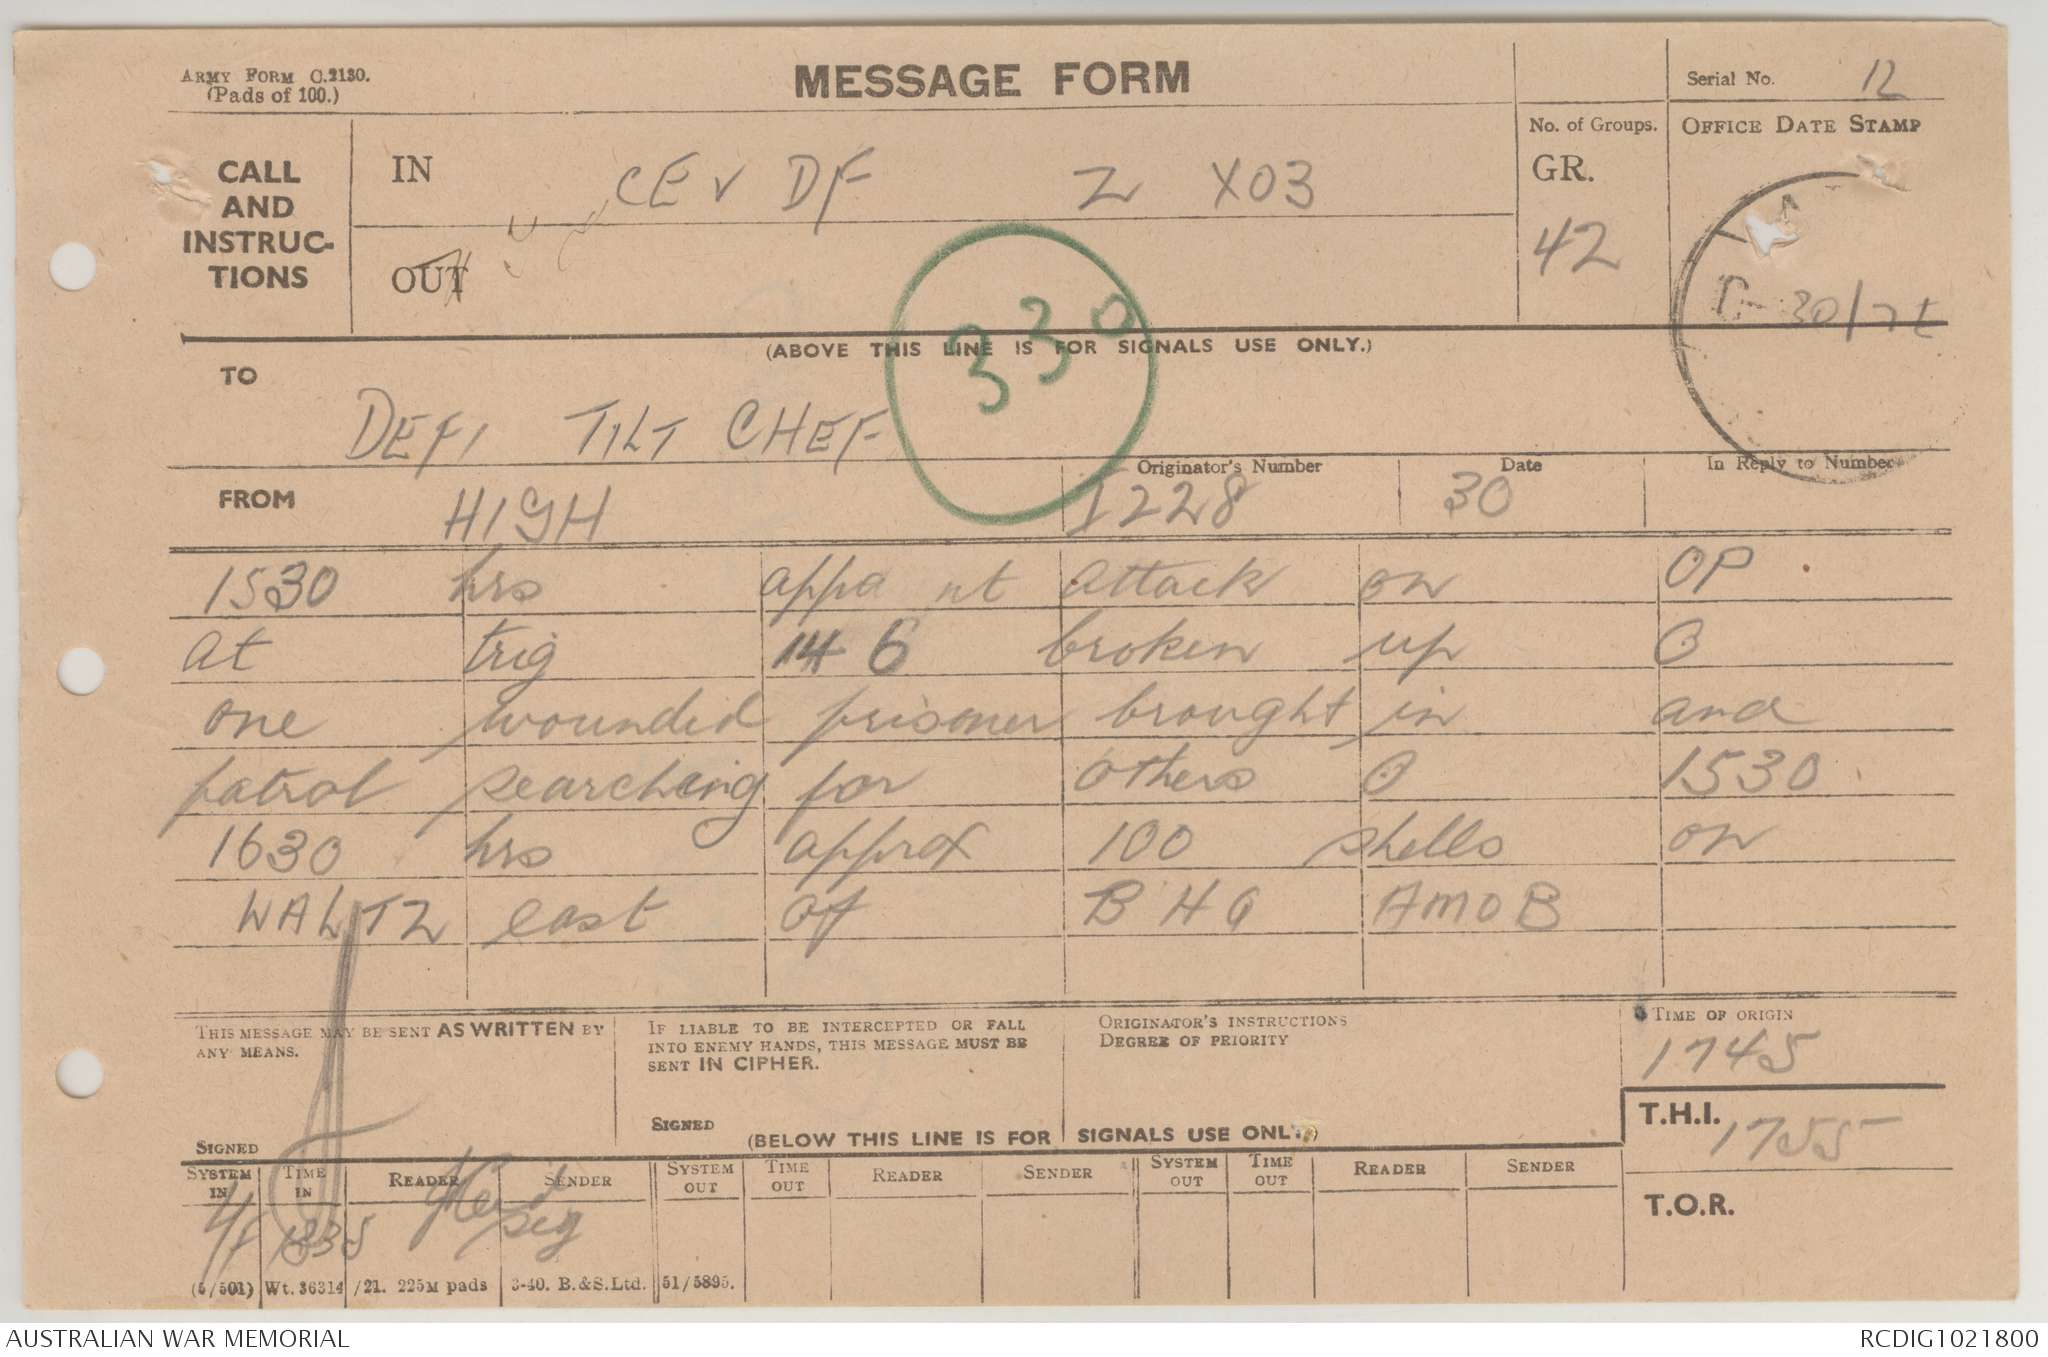 ARMY FORM C.2130.
(Pads of 100.)
MESSAGE FORM
Serial No. 12
CALL AND INSTRUC-TIONS
IN CE v DF Z X03
OUT
No. of Groups.
GR.
42
OFFICE DATE STAMP
30/7
330
(ABOVE THIS LINE IS FOR SIGNALS USE ONLY.)
TO
DEFI TILT CHEF
FROM HIGH
Originator's Number 1228
Date 30
In Reply to Number
1530 hrs appa nt attack on OP
at trig 146 broken up O
one wounded prisoner brought in and
patrol searching for others O 1530
1630 hrs approx 100 shells on
WALTZ east of BHQ AMOB
THIS MESSAGE MAY BE SENT AS WRITTEN BY ANY MEANS.
SIGNED
IF LIABLE TO BE INTERCEPTED OR FALL INTO ENEMY HANDS, THIS MESSAGE MUST BE SENT IN CIPHER.
SIGNED
ORIGINATOR'S INSTRUCTIONS
DEGREE OF PRIORITY
TIME OF ORIGIN
1745
T.H.I. 1755
T.O.R.
(BELOW THIS LINE IS FOR SIGNALS USE ONLY.)
SYSTEM IN TIME IN READER SENDER SYSTEM OUT TIME OUT READER SENDER SYSTEM OUT TIME OUT READER SENDER
1835 sig
(5/501) Wt. 36314/21. 225M pads 3-40. B.&S.Ltd. 51/5895.
AUSTRALIAN WAR MEMORIAL
RCDIG1021800